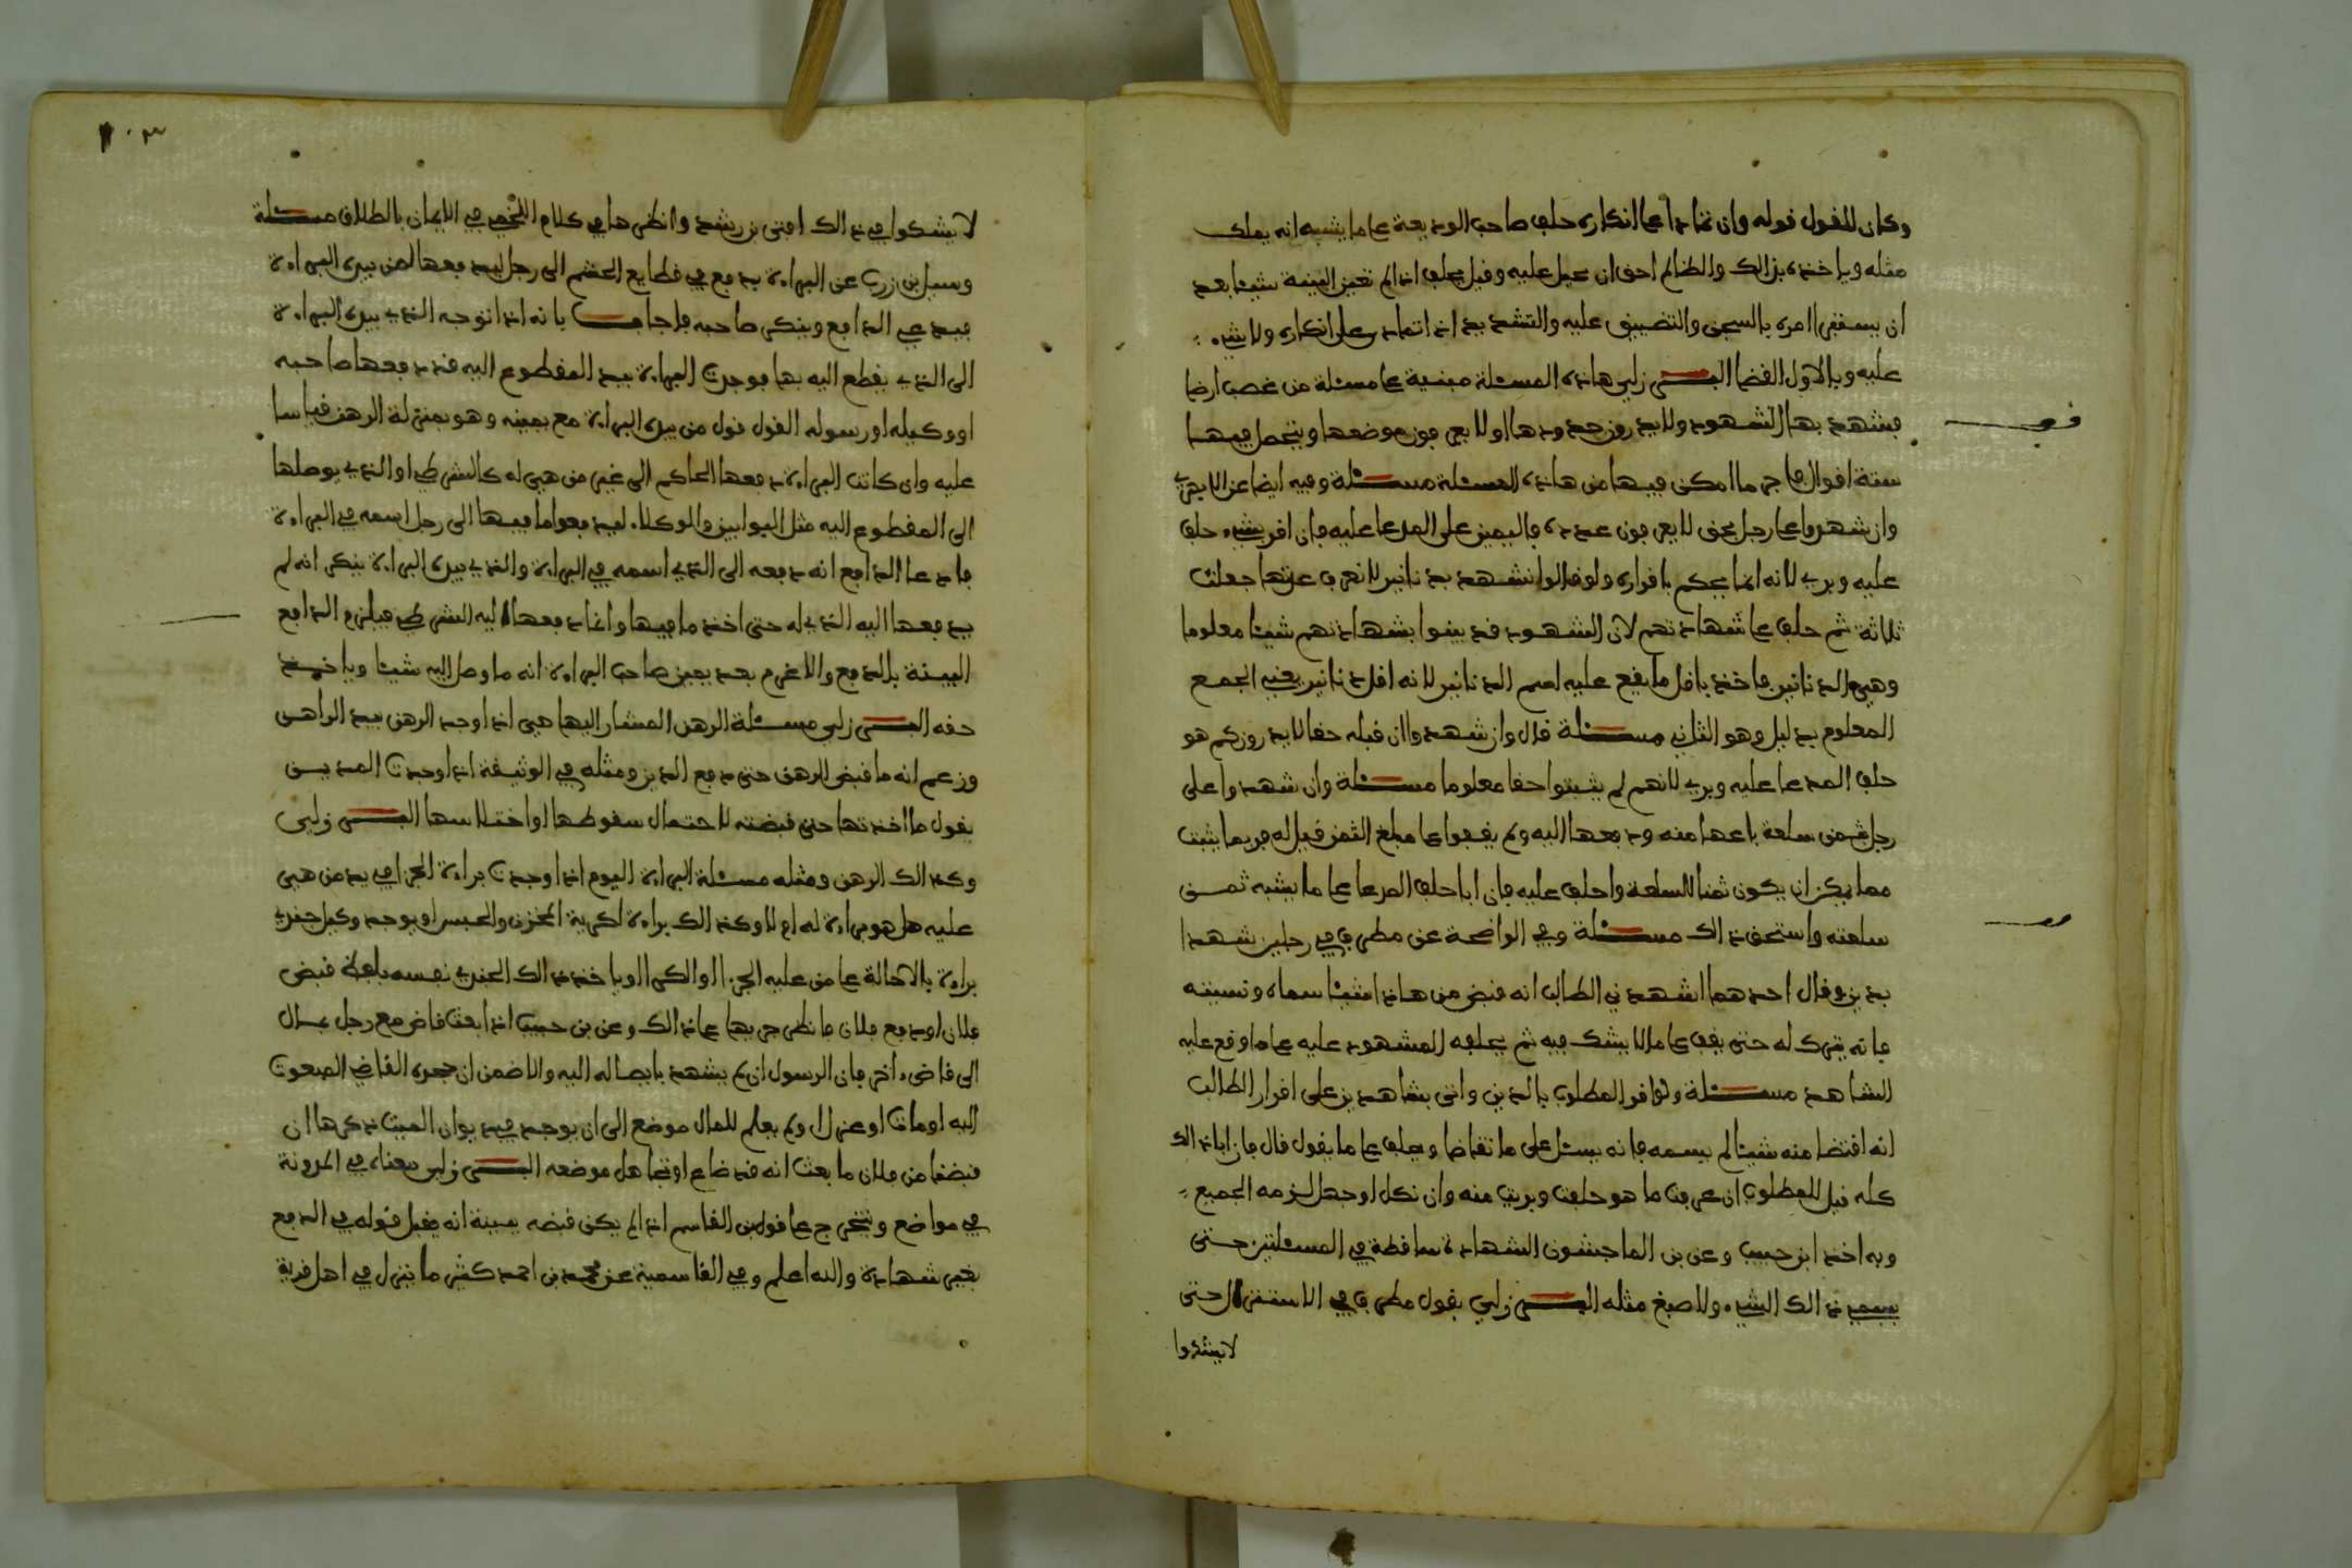 وكان القول قوله وان تمادا على انكاره حلف صاحب الوديعة على ما يشبه انه يملك
مثله وياخذه بذالك والظالم احق ان يحمل عليه وقيل يحلف اذا لم تعين البينة شيئا بعد
ان يستقرا امره بالسجن والتضييق عليه والتشديد اذا تمادى على انكاره ولا شيء
عليه وبالاول القضا البـرزلي هاذه المسئلة مبنية على مسئلة من غصب ارضا
فيشهد بها الشهود ولا يدرون حدودها او لا يعرفون موضعها ويتحصل فيها
ستة اقوال فاجر ما امكن فيها من هاذه المسئلة مسئلة وفيه ايضا عن الابهري
وان شهدوا على رجل بحق لا يعرفون عدده فاليمين على المدعا عليه فان اقر بشيء حلف
عليه وبري لانه انما يحكم باقراره ولو قالوا نشهد بدنانير لا نعرف عدتها جعلت
ثلاثة ثم حلف على شهادتهم لان الشهود قد بينوا بشهادتهم شيئا معلوما
وهي الدنانير فاخذ باقل ما يقع عليه اسم الدنانير لانه اقل دنانير يعني الجمع
المعلوم بدليل وهو الثاني مسئلة قال وان شهدوا ان قبله حقا لا يدرون كم هو
حلف المدعا عليه وبري لانهم لم يثبتوا حقا معلوما مسئلة وان شهدوا على
رجل بثمن سلعة باعها منه ودفعها اليه ولم يقفوا على مبلغ الثمن قيل له قر بما يثبت
مما يمكن ان يكون ثمنا للسلعة واحلف عليه فان ابا حلف المدعا على ما يشبه ثمن
سلعته واستحق ذالك مسئلة وفي الواضحة عن مطرف في رجلين شهدا
بدين وقال احدهما اشهدني الطالب انه قبض من هاذا شيئا سماه ونسيته
فانه يترك له حتى يقف على ما لا يشك فيه ثم يحلفه المشهود عليه على ما وقع عليه
الشاهد مسئلة ولو اقر المطلوب بالدين واتى بشاهدين على اقرار الطالب
انه اقتضا منه شيئا لم يسمه فانه يسئل على ما تقاضا ويحلف على ما يقول قال فان ابا ذالك
كله قيل للمطلوب ان عرفت ما هو حلفت وبريت منه وان نكل او جهل لزمه الجميع
وبه اخذ ابن حبيب وعن بن الماجشون الشهادة ساقطة في المسئلتين حتى
يسمى ذالك الشيء ولاصبغ مثله البـرزلي يقول مطرف في الاستنزال حتى
لا يشكوا
١٠٣
لا يشكوا في ذالك افتى بن رشد وانظرها في كلام اللخمي في الايمان بالطلاق مسئلة
وسيل بن زرب عن البراءة يدفع في قطايع الحشم الى رجل ليدفعها لمن بيده البراءة
فيدعي الدافع وينكر صاحبه فاجاب بانه اذا توجه الذي بيده البراءة
الى الذي يقطع اليه بها فوجدت البراءة بيد المقطوع اليه قد دفعها صاحبه
او وكيله او رسوله القول قول من بيده البراءة مع يمينه وهو بمنزلة الرهن قياسا
عليه وان كانت البراءة دفعها الحاكم الى غير من هي له كالشرطي او الذي يوصلها
الى المقطوع اليه مثل البوابين والوكلاء ليدفعوا ما فيها الى رجل اسمه في البراءة
فادعا الدافع انه دفعه الى الذي اسمه في البراءة والذي بيده البراءة ينكر انه لم
يدفعها اليه الذي له حتى اخذ ما فيها وانما دفعها اليه الشرطي فيلزم الدافع
البينة بالدفع والا غرم بعد يمين صاحب البراءة انه ما وصل اليه شيئا وياخذ
حقه البـرزلي مسئلة الرهن المشار اليها هي اذا وجد الرهن بيد الراهن
وزعم انه ما قبض الرهن حتى دفع الدين ومثله في الوثيقة اذا وجدت المدين
يقول ما اخذتها حتى قبضته لاحتمال سقوطها او اختلاسها البـرزلي
وكذالك الرهن ومثله مسئلة البراءة اليوم اذا وجدت براءة الجزا في يد من هي
عليه هل هو براءة له ام لا وكذالك براءة اكرية المخزن والحبس او يوجد وكيل جندي
براءة بالاحالة على من عليه الجزا او الكرا او ياخذ ذالك الجندي نفسه بلفظ قبض
فلان او دفع فلان فانظر جريها على ذالك وعن بن حبيب اذا بعث قاض مع رجل بمال
الى قاضيء اخر فان الرسول ان لم يشهد بايصاله اليه والا ضمن ان جحده القاضي المبعوث
اليه او مات او عزل ولم يعلم للمال موضع الى ان يوجد في ديوان الميت ذكرها ان
قبضنا من فلان ما بعث انه قد ضاع او تجاهل موضعه البـرزلي معناه في المدونة
في مواضع ويتخرج على قول بن القاسم اذا لم يكن قبضه ببينة انه يقبل قوله في الدفع
بغير شهادة والله اعلم وفي القاسمية عن محمد بن احمد كثير ما ينزل في اهل قرية